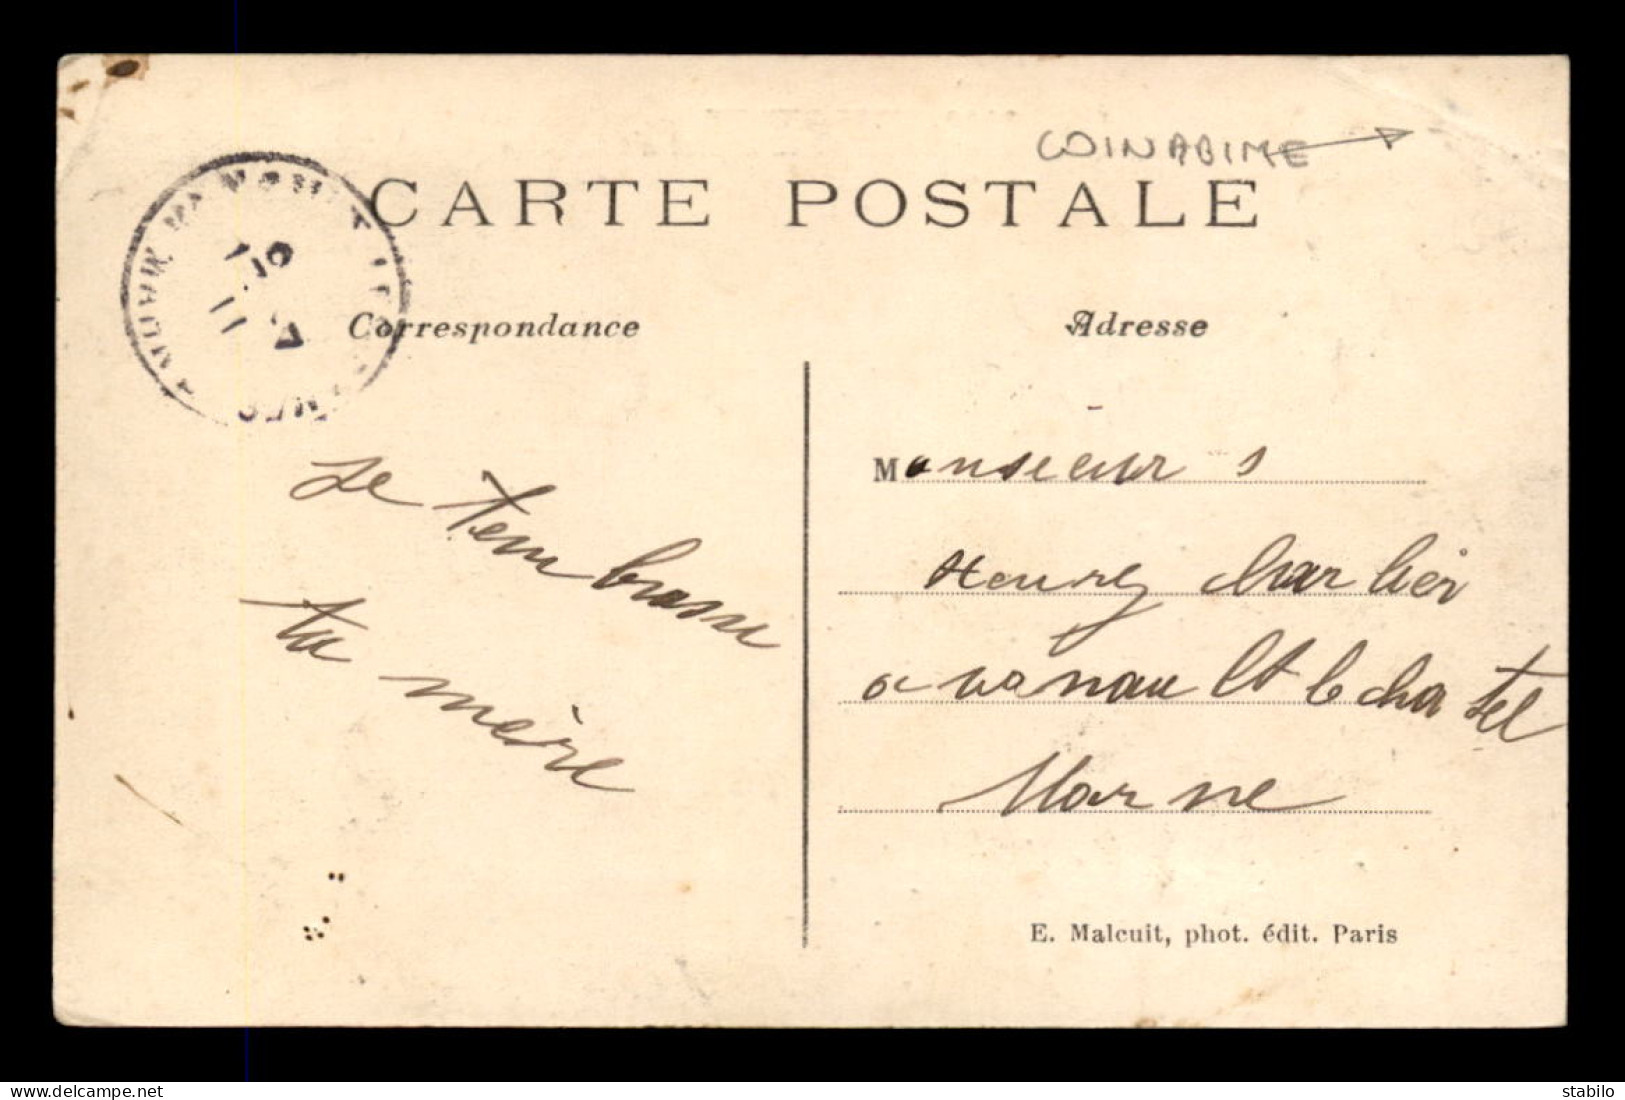 COIN ABIME
CARTE POSTALE
Correspondance
Adresse
Je tembrasse
ta mère
Monseieur s
Henry charlier
a vanault le chatel
Marne
E. Malcuit, phot. édit. Paris
www.delcampe.net
stabilo